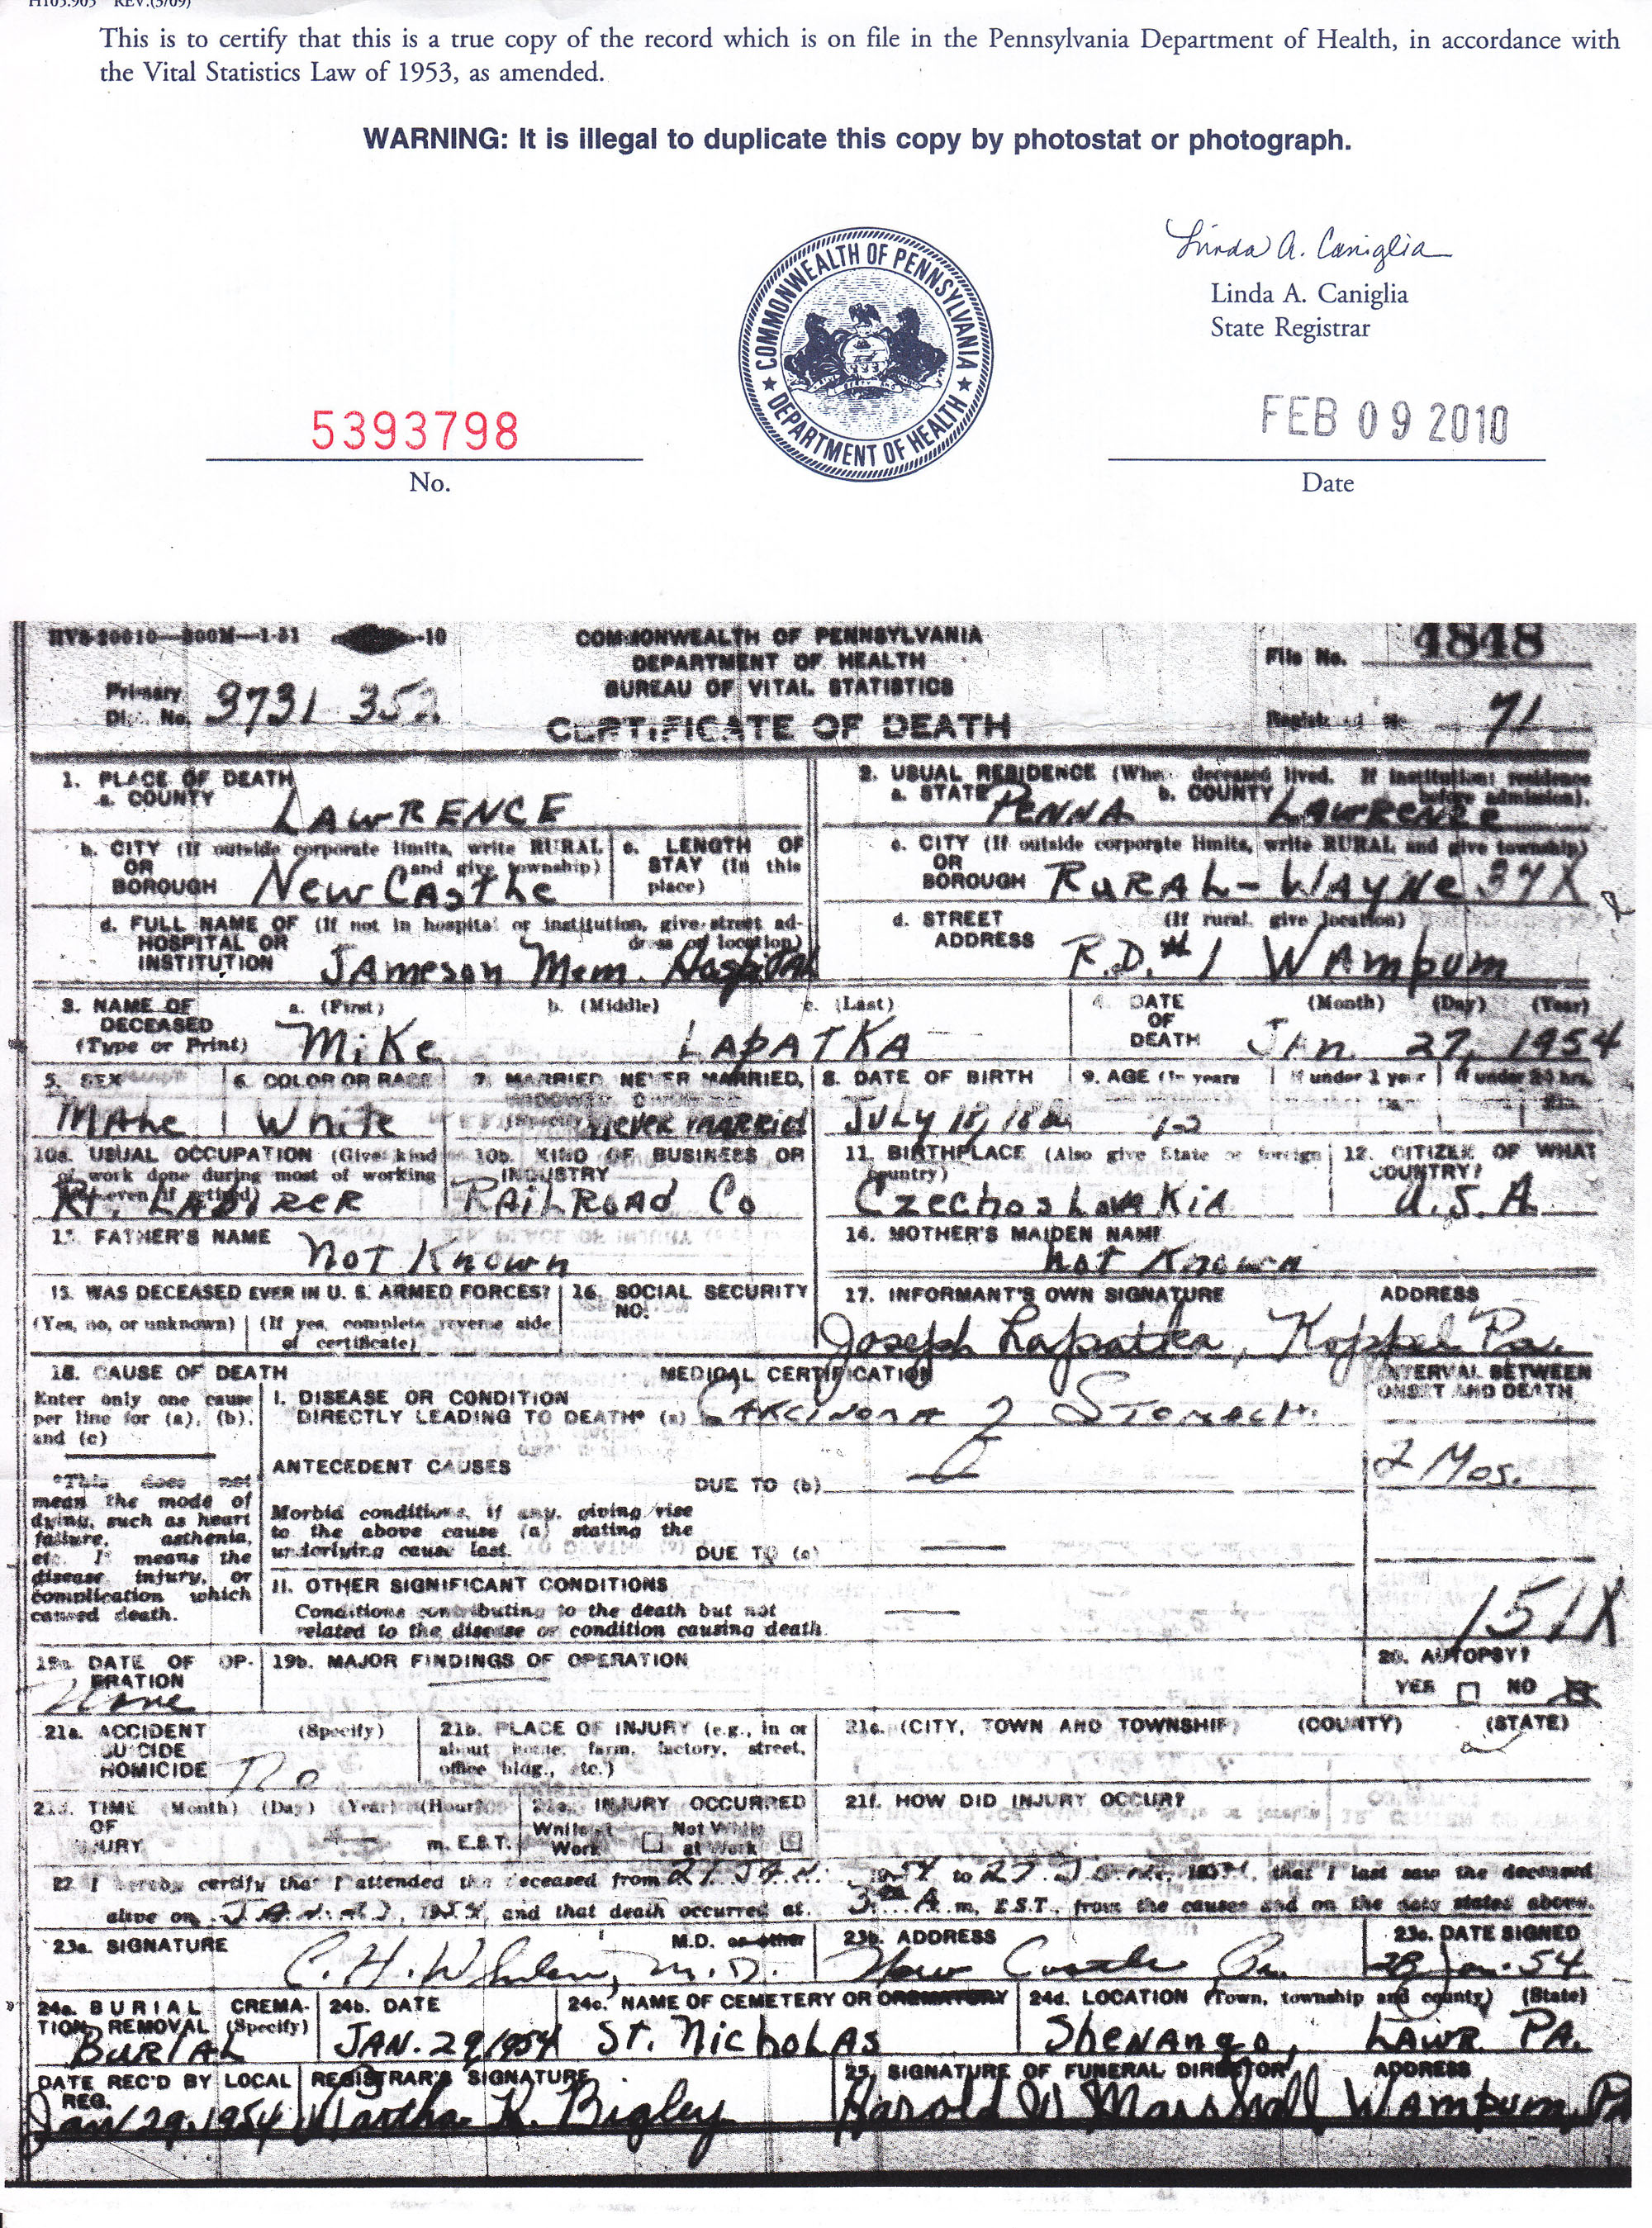 H105.905 REV.(3/09)
This is to certify that this is a true copy of the record which is on file in the Pennsylvania Department of Health, in accordance with
the Vital Statistics Law of 1953, as amended.
WARNING: It is illegal to duplicate this copy by photostat or photograph.
COMMONWEALTH OF PENNSYLVANIA
DEPARTMENT OF HEALTH
Linda A. Caniglia
Linda A. Caniglia
State Registrar
5393798
No.
FEB 09 2010
Date
-10
COMMONWEALTH OF PENNSYLVANIA
DEPARTMENT OF HEALTH
BUREAU OF VITAL STATISTICS
CERTIFICATE OF DEATH
File No. 4848
Primary
Dist. No. 3731 352
Registered No. 71
1. PLACE OF DEATH
a. COUNTY LAWRENCE
2. USUAL RESIDENCE (Where deceased lived. If institution: residence
before admission).
a. STATE PENNA b. COUNTY LAWRENCE
b. CITY (If outside corporate limits, write RURAL
OR and give township)
BOROUGH New Castle
c. LENGTH OF
STAY (In this
place)
c. CITY (If outside corporate limits, write RURAL and give township)
OR
BOROUGH RURAL-WAYNE 37X
d. FULL NAME OF (If not in hospital or institution, give street ad-
HOSPITAL OR dress or location)
INSTITUTION JAmeson Mem. Hospital
d. STREET (If rural, give location)
ADDRESS R.D.#1 WAMPUM
3. NAME OF
DECEASED
(Type or Print)
a. (First) b. (Middle) c. (Last)
Mike LAPATKA
4. DATE
OF
DEATH
(Month) (Day) (Year)
JAn. 27, 1954
5. SEX
MALe
6. COLOR OR RACE
White
7. MARRIED, NEVER MARRIED,
never married
8. DATE OF BIRTH
JULY 18,
9. AGE (In years
If under 1 year If under 24 hrs.
10a. USUAL OCCUPATION (Give kind
of work done during most of working
life, even if retired)
Rt. LABORER
10b. KIND OF BUSINESS OR
INDUSTRY
RAILROAD Co
11. BIRTHPLACE (Also give State or foreign
country)
CzechosLovakia
12. CITIZEN OF WHAT
COUNTRY?
U.S.A.
13. FATHER'S NAME
not Known
14. MOTHER'S MAIDEN NAME
not Known
15. WAS DECEASED EVER IN U. S. ARMED FORCES?
(Yes, no, or unknown) (If yes, complete reverse side
of certificate)
16. SOCIAL SECURITY
NO.
17. INFORMANT'S OWN SIGNATURE ADDRESS
Joseph Lapatka, Koppel Pa.
18. CAUSE OF DEATH
Enter only one cause
per line for (a), (b),
and (c)
*This does not
mean the mode of
dying, such as heart
failure, asthenia,
etc. It means the
disease, injury, or
complication which
caused death.
MEDICAL CERTIFICATION
I. DISEASE OR CONDITION
DIRECTLY LEADING TO DEATH* (a) Carcinoma of Stomach
INTERVAL BETWEEN
ONSET AND DEATH
2 Mos.
ANTECEDENT CAUSES
DUE TO (b)
Morbid conditions, if any, giving rise
to the above cause (a) stating the
underlying cause last.
DUE TO (c)
II. OTHER SIGNIFICANT CONDITIONS
Conditions contributing to the death but not
related to the disease or condition causing death.
151X
19a. DATE OF OP-
ERATION
None
19b. MAJOR FINDINGS OF OPERATION
20. AUTOPSY?
YES NO
21a. ACCIDENT (Specify)
SUICIDE
HOMICIDE No
21b. PLACE OF INJURY (e.g., in or
about home, farm, factory, street,
office bldg., etc.)
21c. (CITY, TOWN AND TOWNSHIP) (COUNTY) (STATE)
21d. TIME (Month) (Day) (Year) (Hour)
OF
INJURY m. E.S.T.
21e. INJURY OCCURRED
While at Not While
Work at Work
21f. HOW DID INJURY OCCUR?
22. I hereby certify that I attended the deceased from 21 JAN. 1954 to 27 Jan. 1954, that I last saw the deceased
alive on JAN. 1954, and that death occurred at 3 A. m, E.S.T., from the causes and on the date stated above.
23a. SIGNATURE M.D. or other
C. H. Whalen, M.D.
23b. ADDRESS
New Castle Pa.
23c. DATE SIGNED
28 Jan. 54
24a. BURIAL CREMA-
TION REMOVAL (Specify)
BURIAL
24b. DATE
JAN. 29, 1954
24c. NAME OF CEMETERY OR CREMATORY
ST. NichoLAS
24d. LOCATION (Town, township and county) (State)
Shenango, LAWR. PA.
DATE REC'D BY LOCAL
REG.
Jan 29, 1954
REGISTRAR'S SIGNATURE
Martha K. Bigley
25. SIGNATURE OF FUNERAL DIRECTOR ADDRESS
Harold D Marshall WAMPUM, Pa